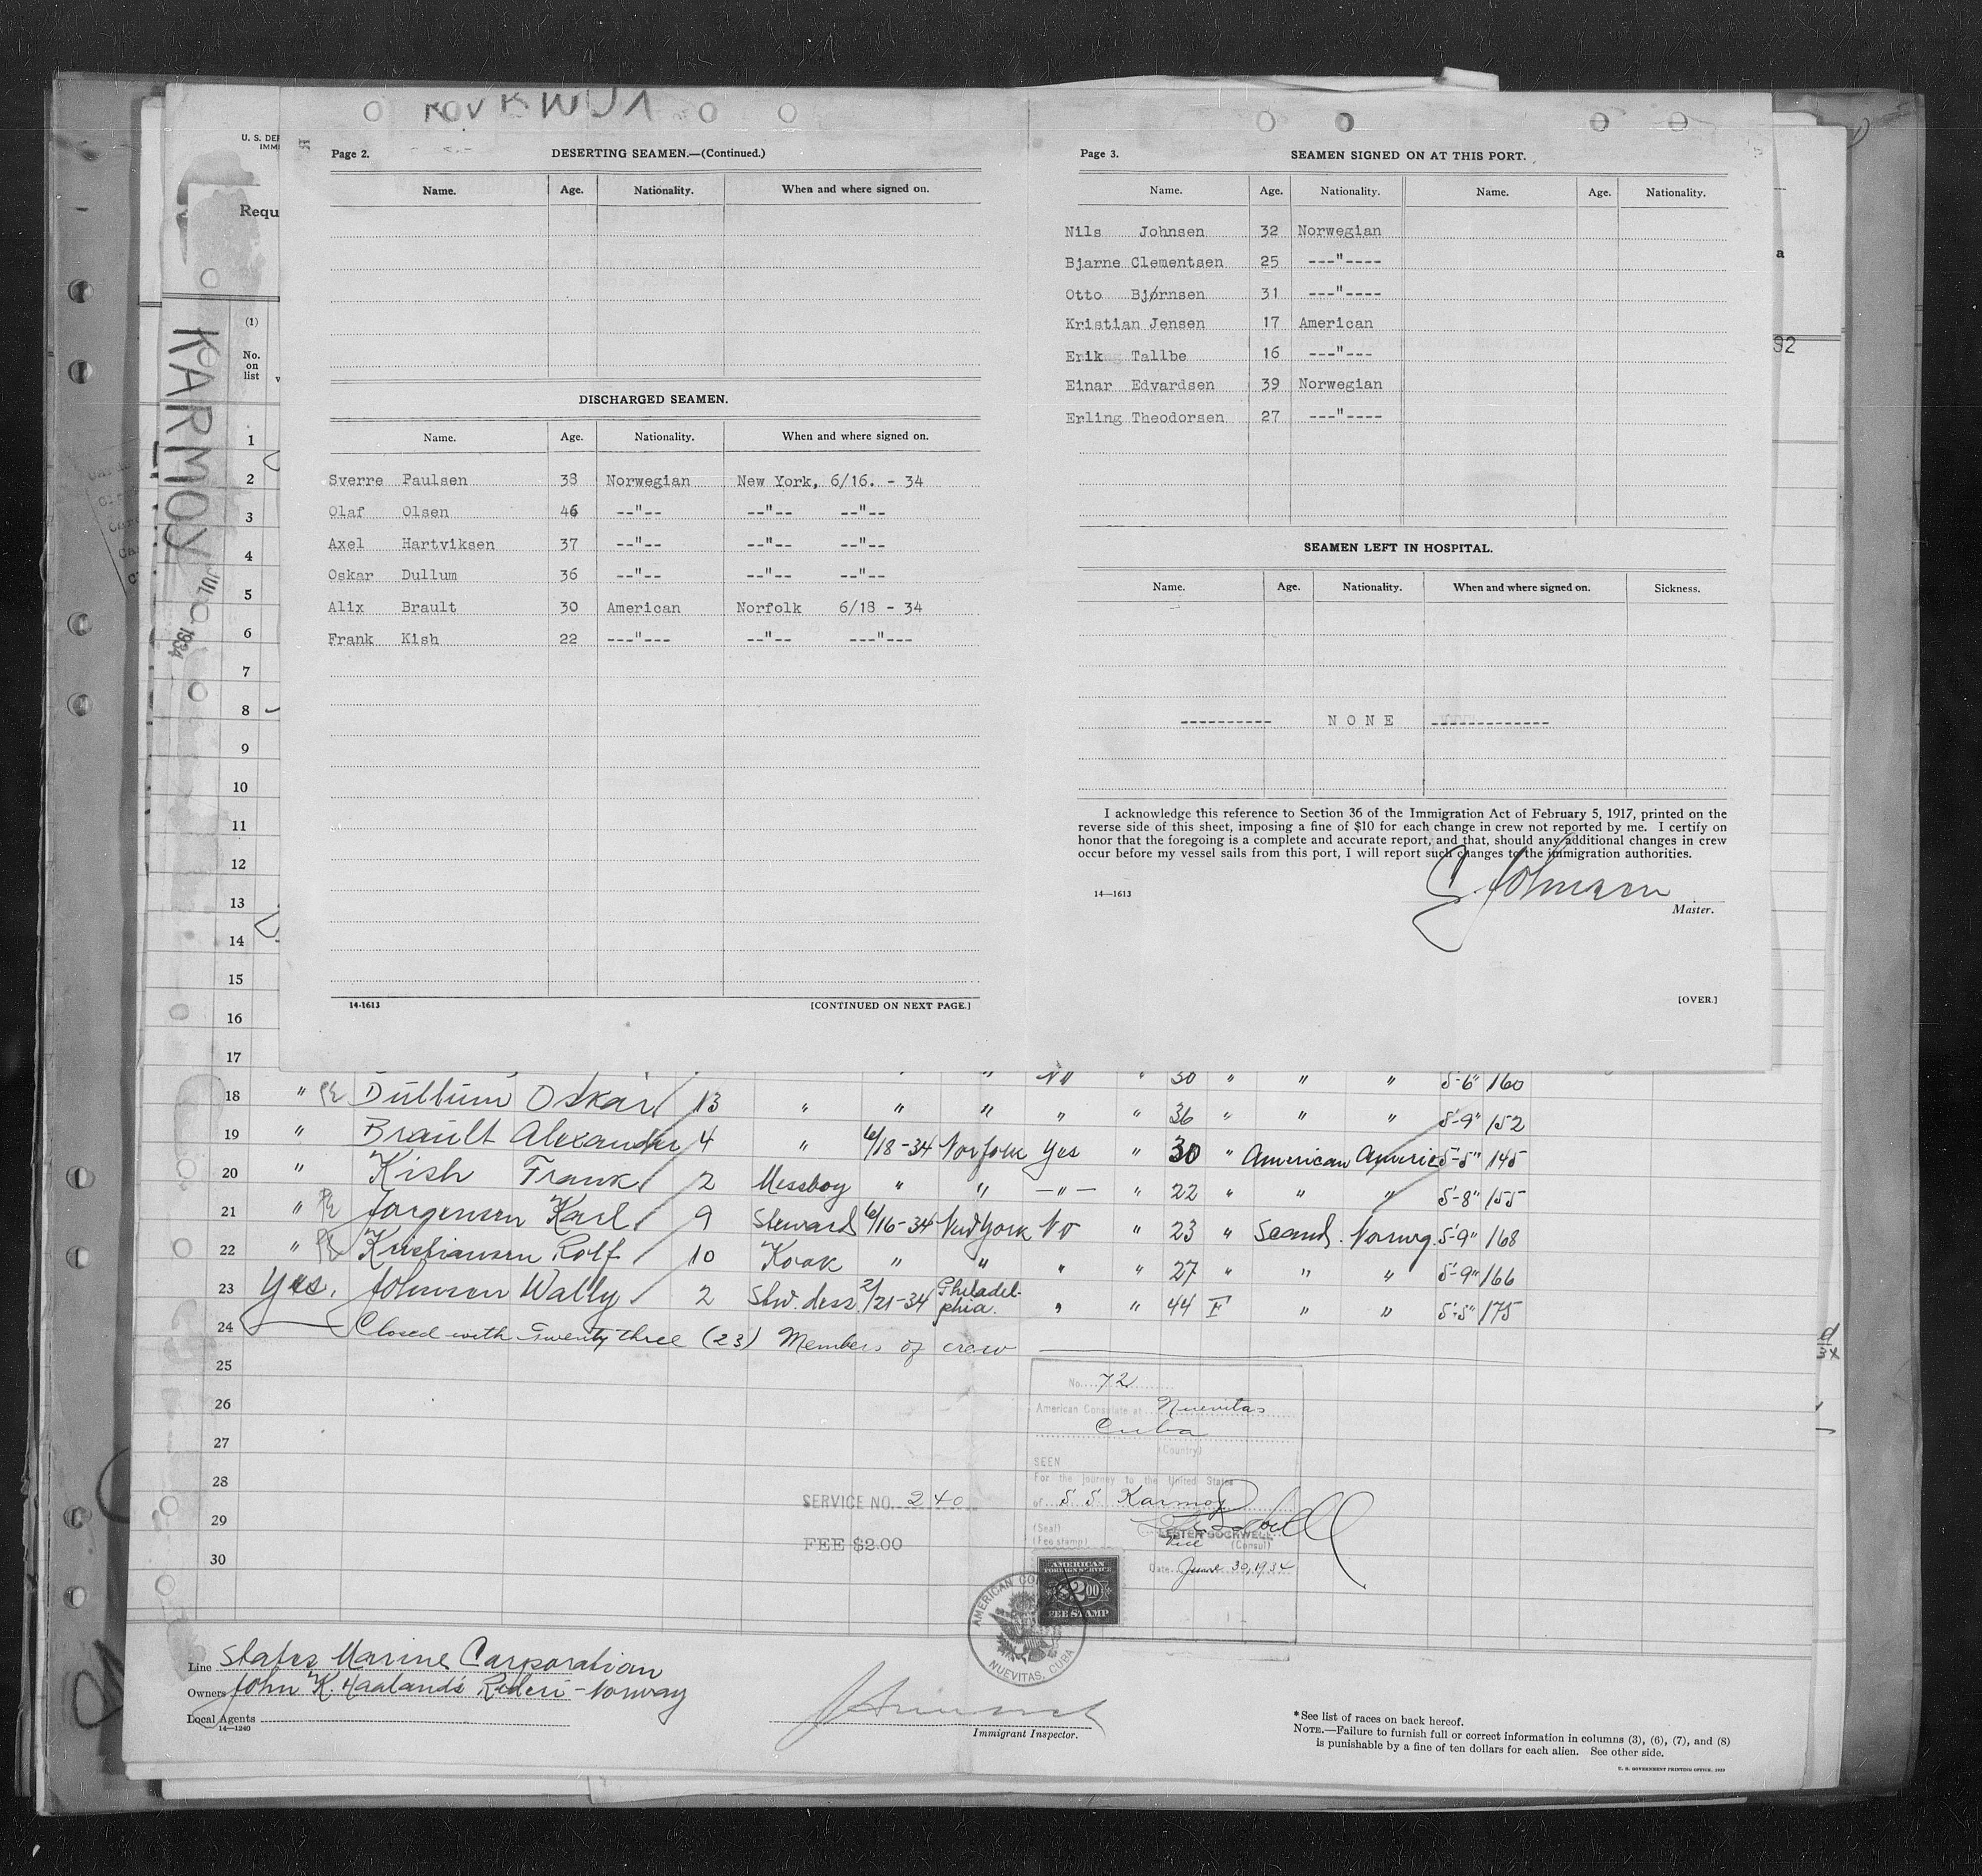 U. S. DEP
IMMI
Requ
KARMOY
JUL
1934
(1)
No.
on
list
1
2
3
4
5
6
7
8
9
10
11
12
13
14
15
16
17
Page 2.
DESERTING SEAMEN.—(Continued.)
Name. Age. Nationality. When and where signed on.
DISCHARGED SEAMEN.
Name. Age. Nationality. When and where signed on.
Sverre Paulsen 38 Norwegian New York, 6/16. - 34
Olaf Olsen 46 --"-- --"-- --"--
Axel Hartviksen 37 --"-- --"-- --"--
Oskar Dullum 36 --"-- --"-- --"--
Alix Brault 30 American Norfolk 6/18 - 34
Frank Kish 22 ---"--- --"-- ---"---
14-1613 [CONTINUED ON NEXT PAGE.]
Page 3.
SEAMEN SIGNED ON AT THIS PORT.
Name. Age. Nationality. Name. Age. Nationality.
Nils Johnsen 32 Norwegian
Bjarne Clementsen 25 ---"----
Otto Bjørnsen 31 ---"----
Kristian Jensen 17 American
Erik Tallbe 16 ---"---
Einar Edvardsen 39 Norwegian
Erling Theodorsen 27 ---"----
SEAMEN LEFT IN HOSPITAL.
Name. Age. Nationality. When and where signed on. Sickness.
---------- NONE -------------
I acknowledge this reference to Section 36 of the Immigration Act of February 5, 1917, printed on the
reverse side of this sheet, imposing a fine of $10 for each change in crew not reported by me. I certify on
honor that the foregoing is a complete and accurate report, and that, should any additional changes in crew
occur before my vessel sails from this port, I will report such changes to the immigration authorities.
14—1613
Johnsen
Master.
[OVER.]
a
92
" No " 30 " " " 5'-6" 160
18 " Dullum Oskar 13 " " " " " 36 " " " 5'-9" 152
19 " Brault Alexander 4 " 6/18-34 Norfolk Yes " 30 " American Americ 5'-5" 145
20 " Kish Frank 2 Messboy " " —"— " 22 " " " 5'-8" 155
21 " Jorgensen Karl 9 Steward 6/16-34 New York No " 23 " Scand. Norwg. 5'-9" 168
22 " Kristiansen Rolf 10 Kook " " " " 27 " " " 5'-9" 166
23 Yes. Johnsen Wally 2 Stw. dess. 2/21-34 Philadel-phia. " " 44 F " " 5'-5" 175
24 Closed with Twenty three (23) Members of crew
25
26
27
28
29
30
No. 72
American Consulate at Nuevitas
Cuba
(Country)
SEEN
For the journey to the United States
of S S Karmoy
(Seal)
(Fee stamp)
LESTER SOCKWELL
Vice (Consul)
Date June 30, 1934
SERVICE NO. 240
FEE $2.00
AMERICAN
FOREIGN SERVICE
$2.00
FEE STAMP
AMERICAN CO
NUEVITAS, CUBA
Line States Marine Corporation
Owners John K. Haaland's Rederi - Norway
Local Agents
14—1240
Immigrant Inspector.
* See list of races on back hereof.
NOTE.—Failure to furnish full or correct information in columns (3), (6), (7), and (8)
is punishable by a fine of ten dollars for each alien. See other side.